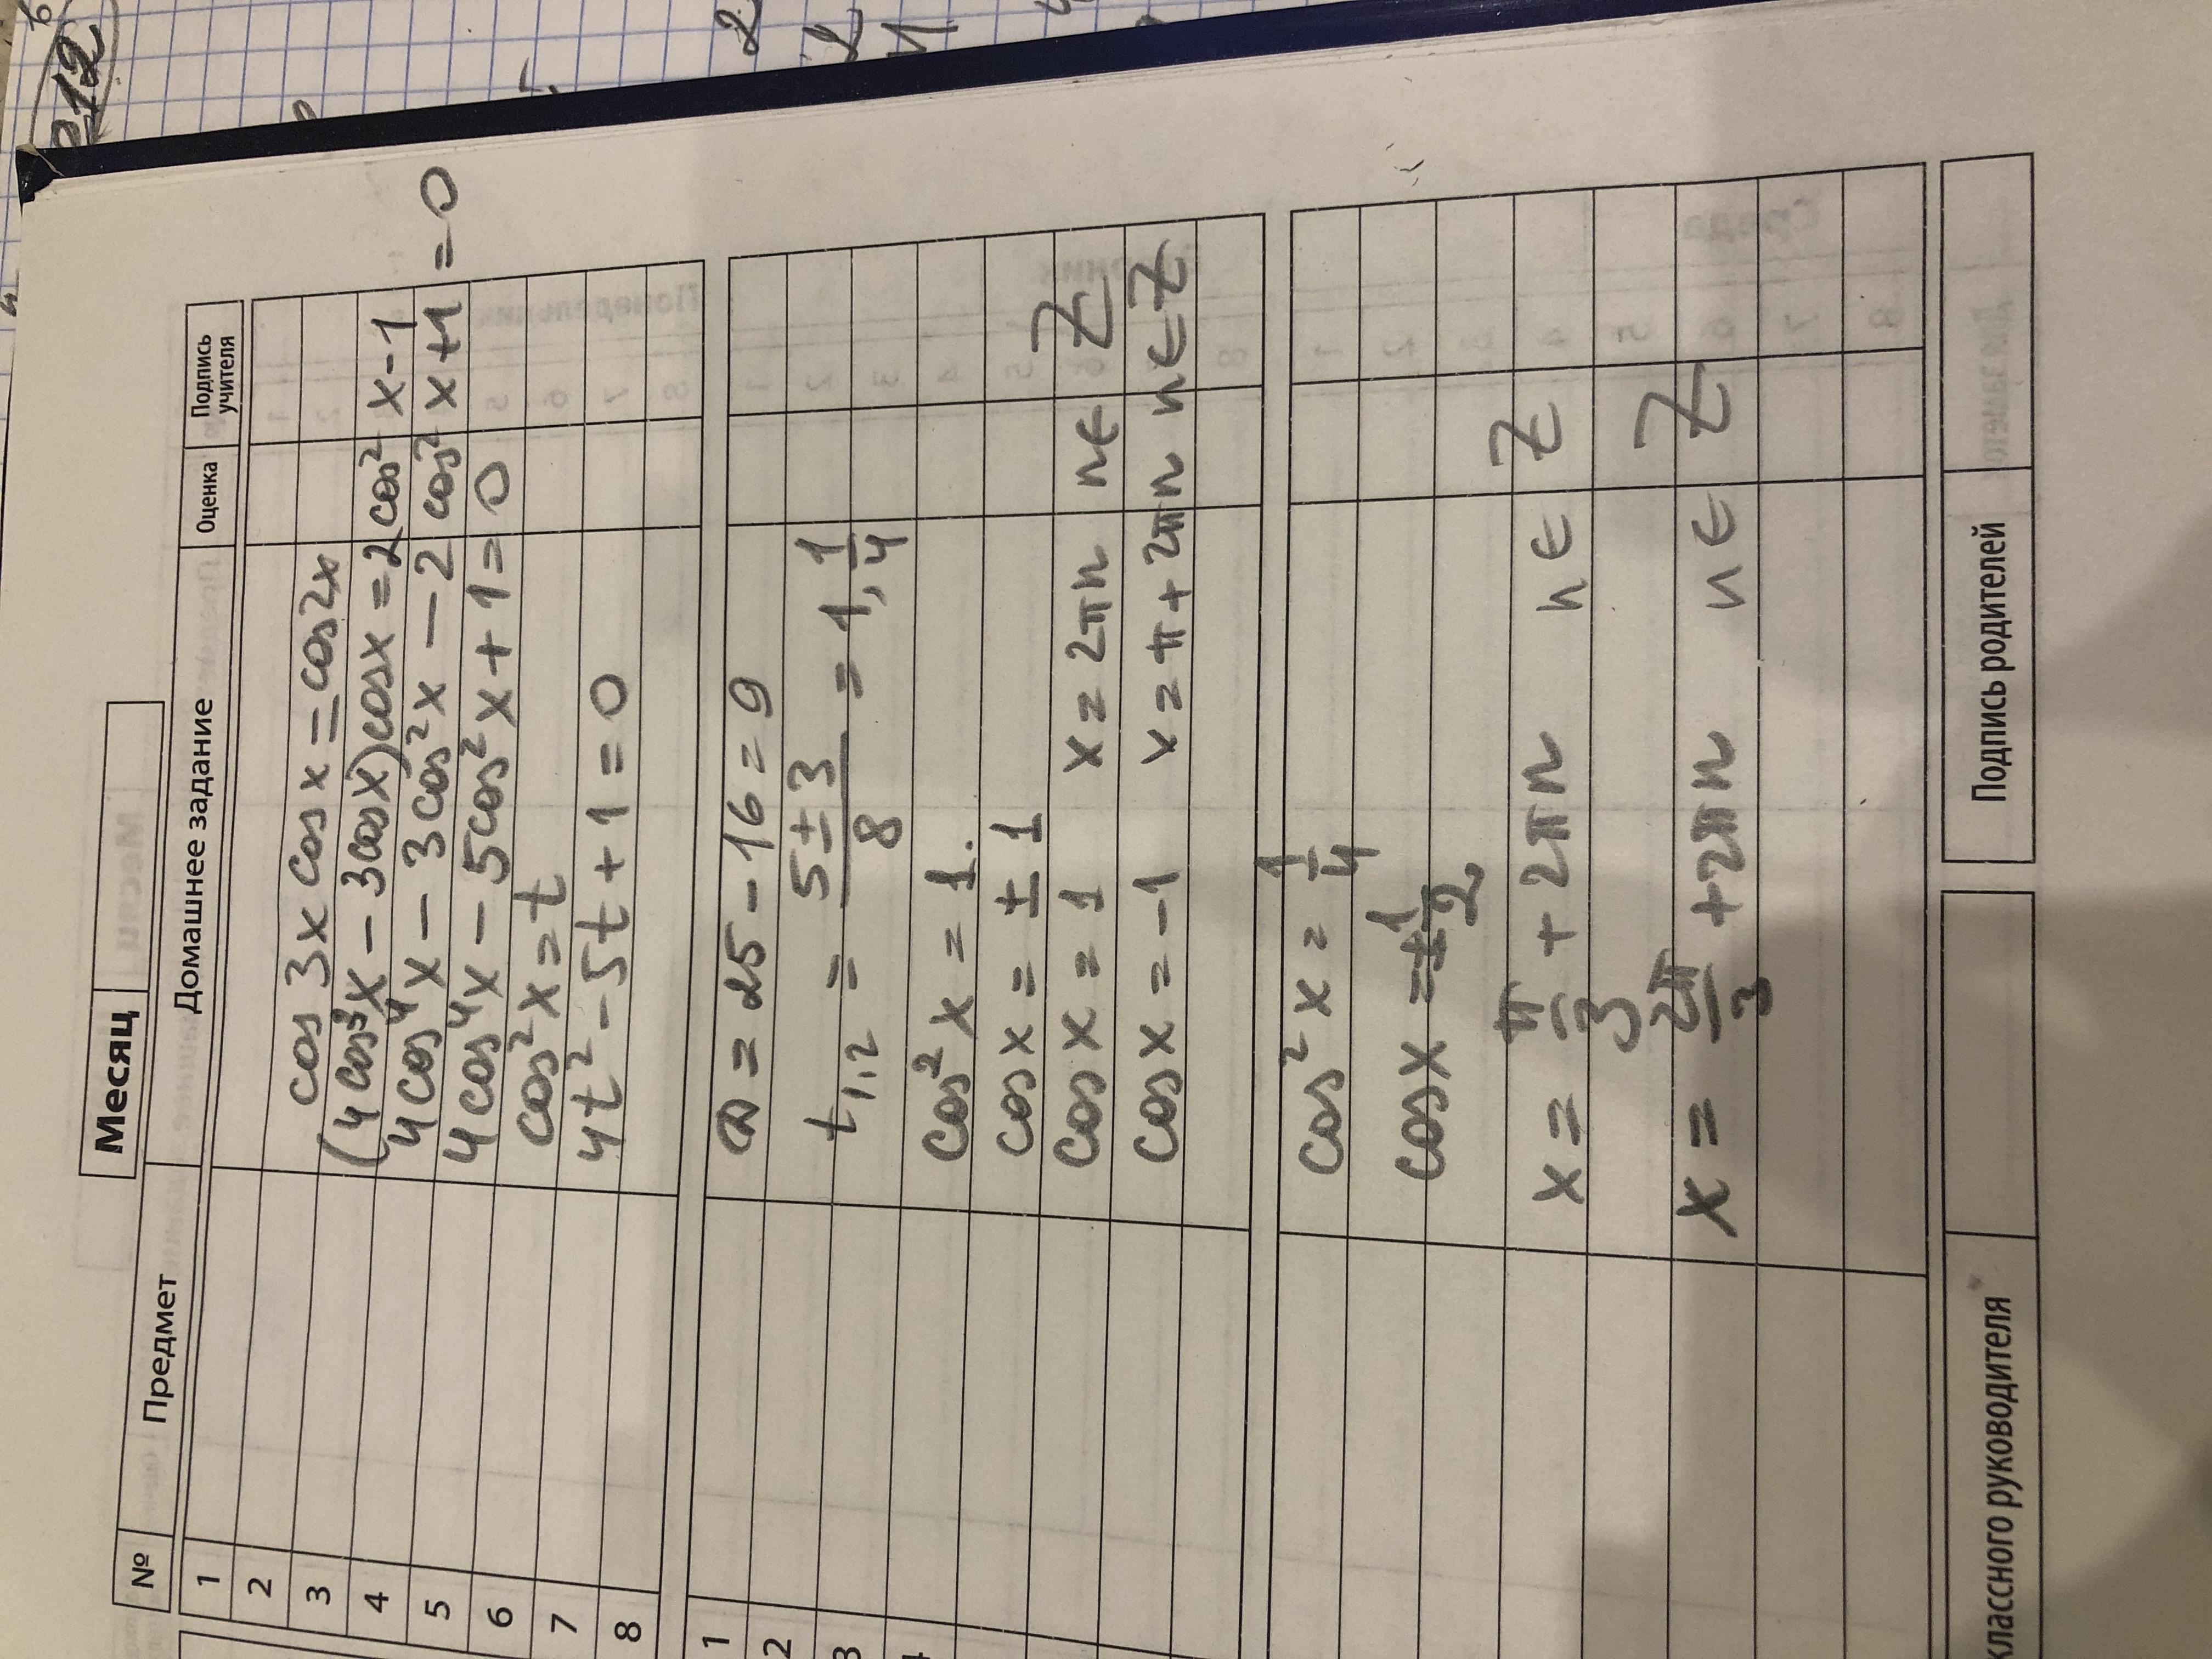 Месяц
№ Предмет Домашнее задание Оценка Подпись учителя
1
2
3 cos 3x cos x = cos 2x
4 (4 cos³x − 3cos x) cos x = 2 cos² x − 1
5 4 cos⁴ x − 3 cos² x − 2 cos² x + 1 = 0
6 4 cos⁴ x − 5 cos² x + 1 = 0
7 cos² x = t
8 4t² − 5t + 1 = 0
1 D = 25 − 16 = 9
2 t₁,₂ = (5 ± 3)/8 = 1, 1/4
3
cos² x = 1.
cos x = ± 1
cos x = 1 x = 2πn n ∈ Z
cos x = −1 x = π + 2πn n ∈ Z
cos² x = 1/4
cos x = ± 1/2
x = π/3 + 2πn n ∈ Z
x = 2π/3 + 2πn n ∈ Z
классного руководителя Подпись родителей